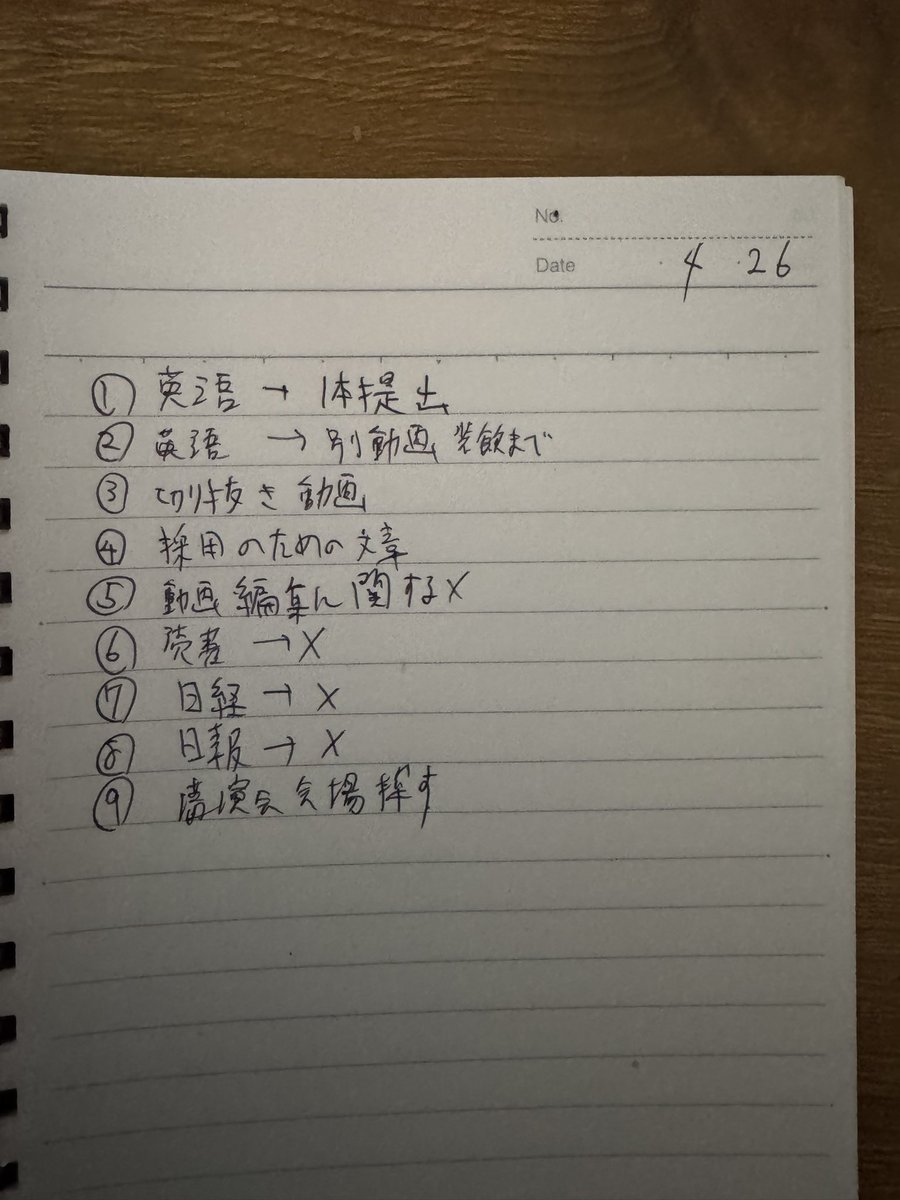 No.
Date 4 26
① 英語 → 1本提出
② 英語 → 別動画 まで
③ 切り抜き動画
④ 採用のための文章
⑤ 動画編集に関するX
⑥ 読書 → X
⑦ 日経 → X
⑧ 日報 → X
⑨ 講演会会場探す